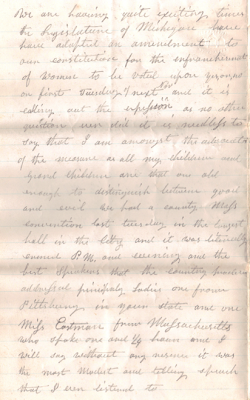 We are having quite exciting times
the Legislature of Michigan have
have adopted an amendment to
our constitution for the enfranchisment
of Women to be voted upon yes or no
on first Tuesday next and it is
calling out the expression as no other
question ever did it is needless to
say that I am amongst the advocates
of the measure as all my children and
grand children are that are old
enough to distinguish between good
and evil we had a county Mass
convention last tuesday in the largest
hall in the City and it was literally
crowed P.M. and evening and the
best Speakers that the country
adressed principaly Ladies one from
Pittsburg in your state and one
Miss Eastman from Massachusetts
who spoke one and 1/2 hours and I
will say without any reserve it was
the most Modest and telling speech
that I ever listend to